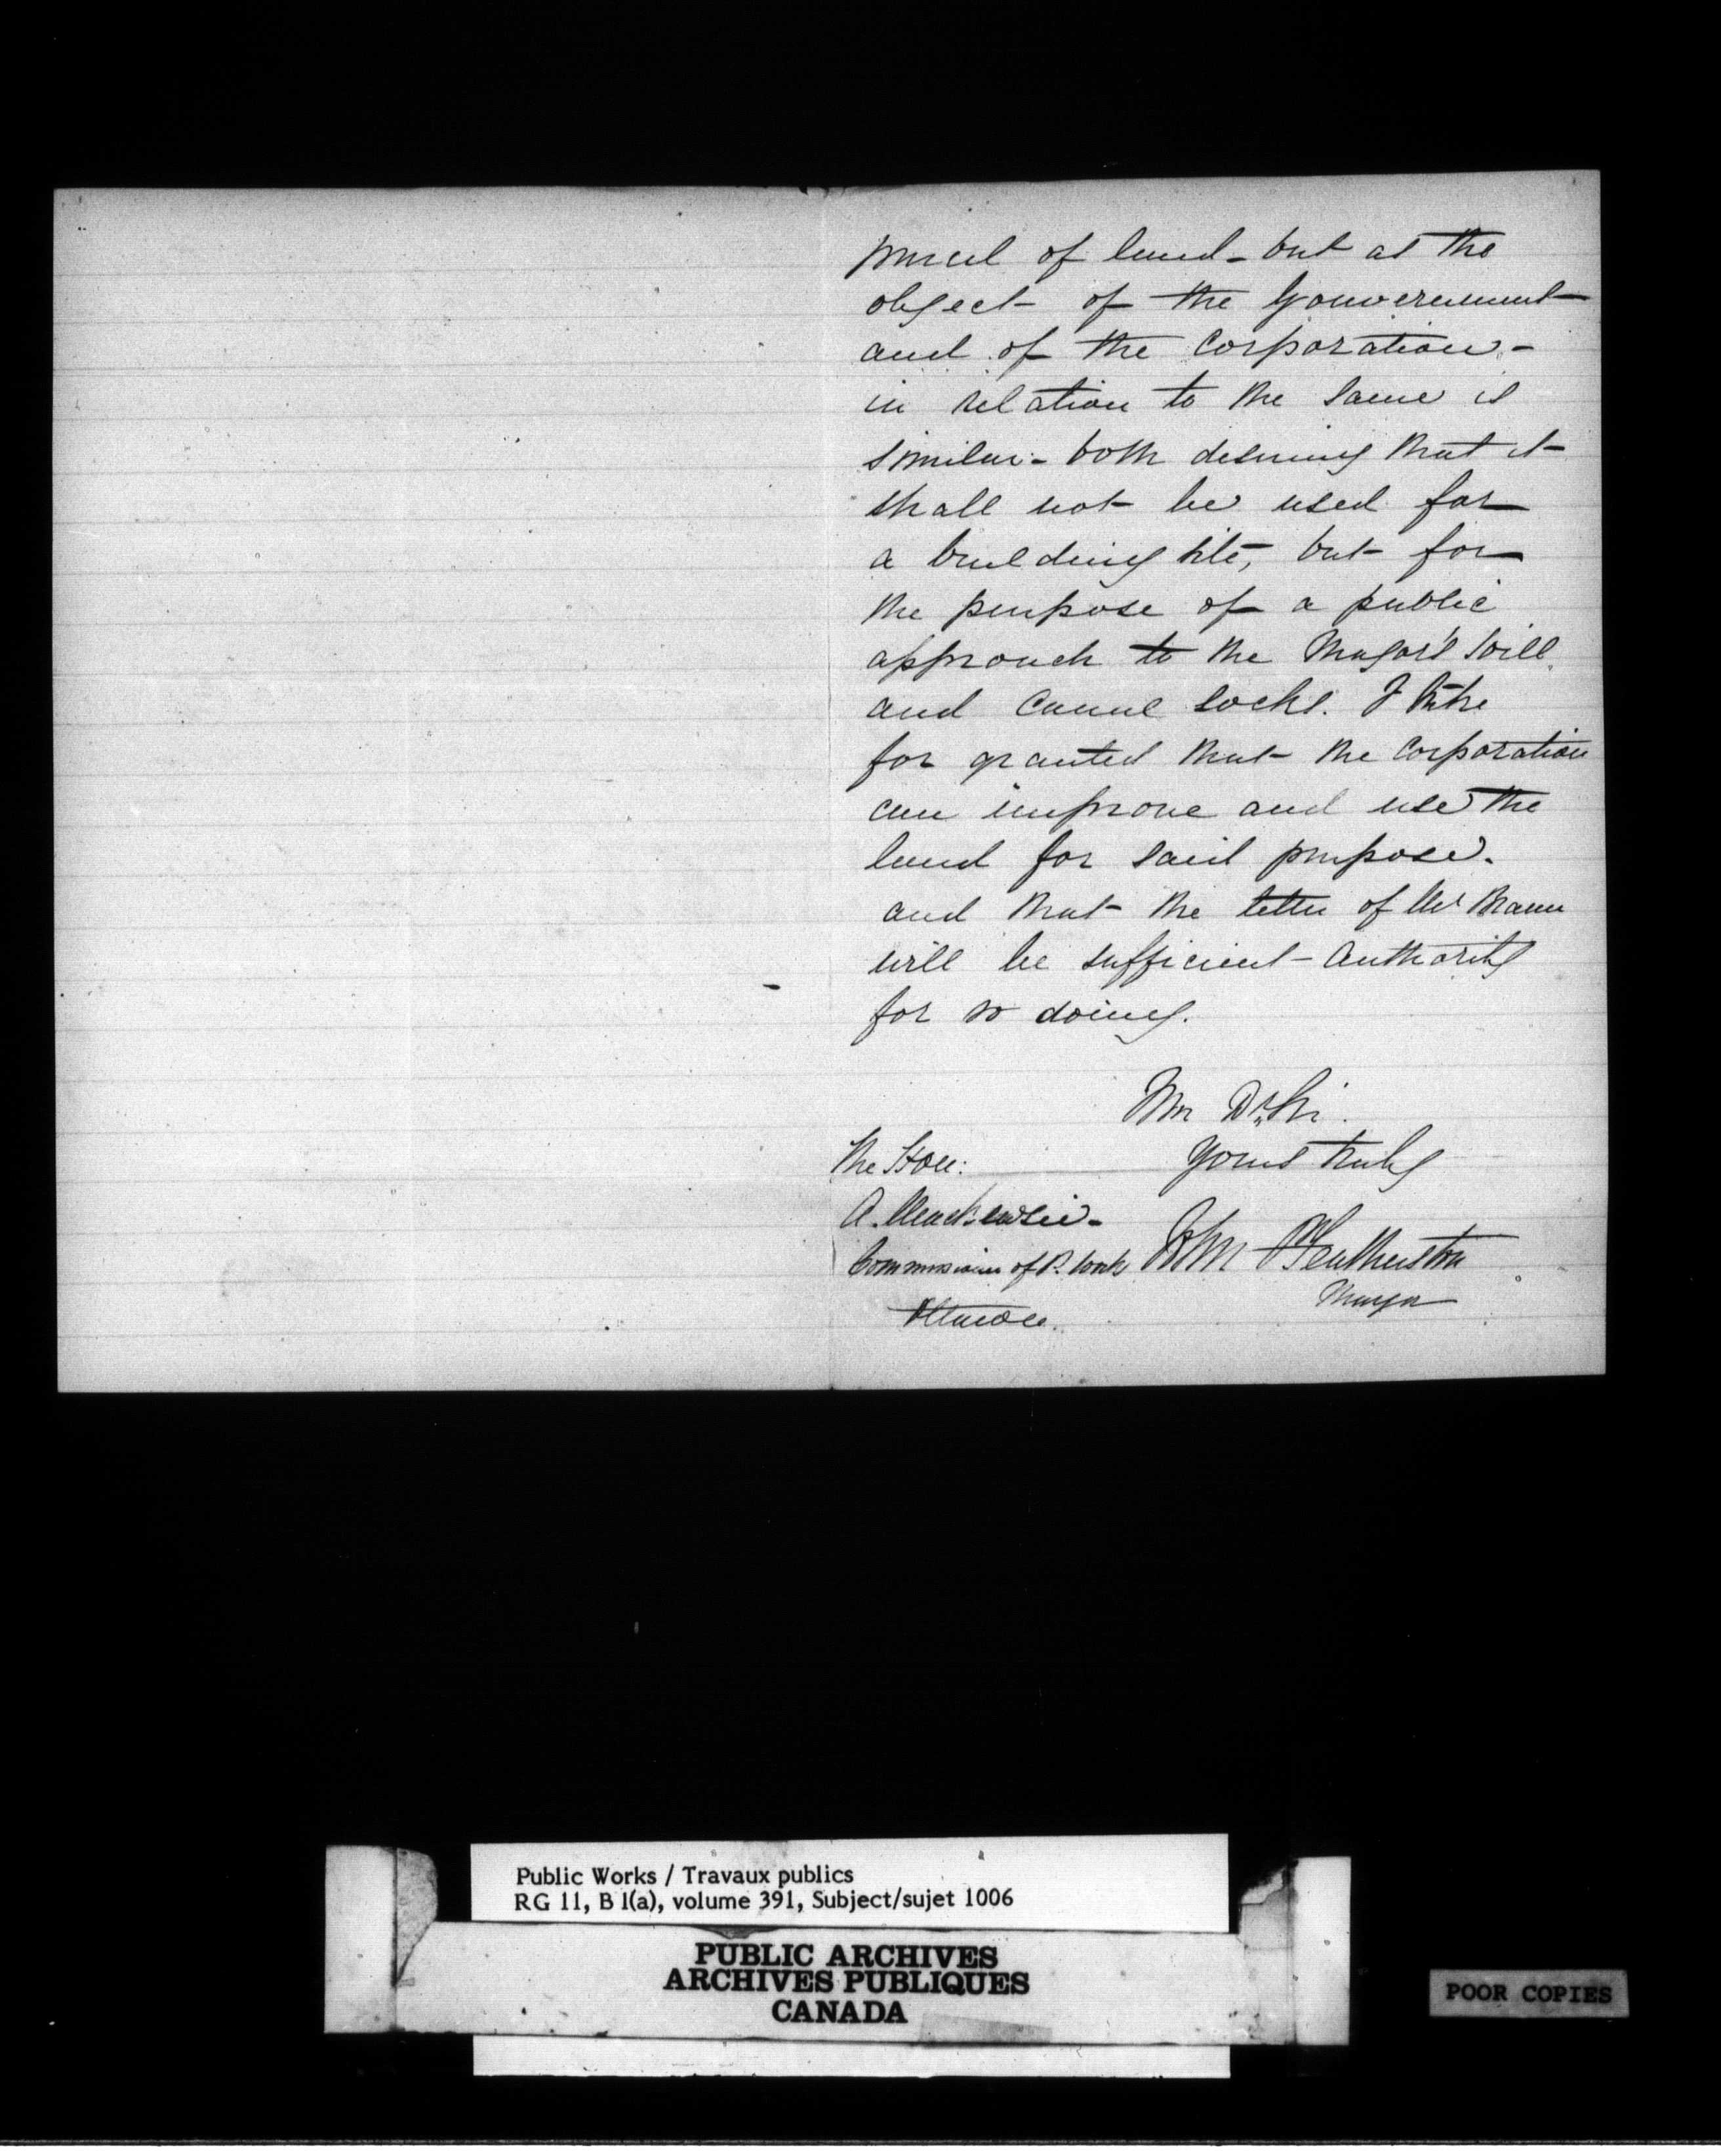 parcel of land - but as the
object of the Gouvernment
and of the Corporation -
in relation to the same is
similar - both desiring that it
shall not be used for
a building site, but for
the purpose of a public
approach to the Major's Hill
and Canal Locks. I take
for granted that the Corporation
can improve and use the
land for said purpose.
and that the letter of Mr Braun
will be sufficient authority
for so doing.
I'm Dr Sir.
Yours truly
The Hon:
A. Mackenzie -
Commissioner of P. Works
Ottawa.
John P Featherston
Mayor
Public Works / Travaux publics
RG 11, B 1(a), volume 391, Subject/sujet 1006
PUBLIC ARCHIVES
ARCHIVES PUBLIQUES
CANADA
POOR COPIES